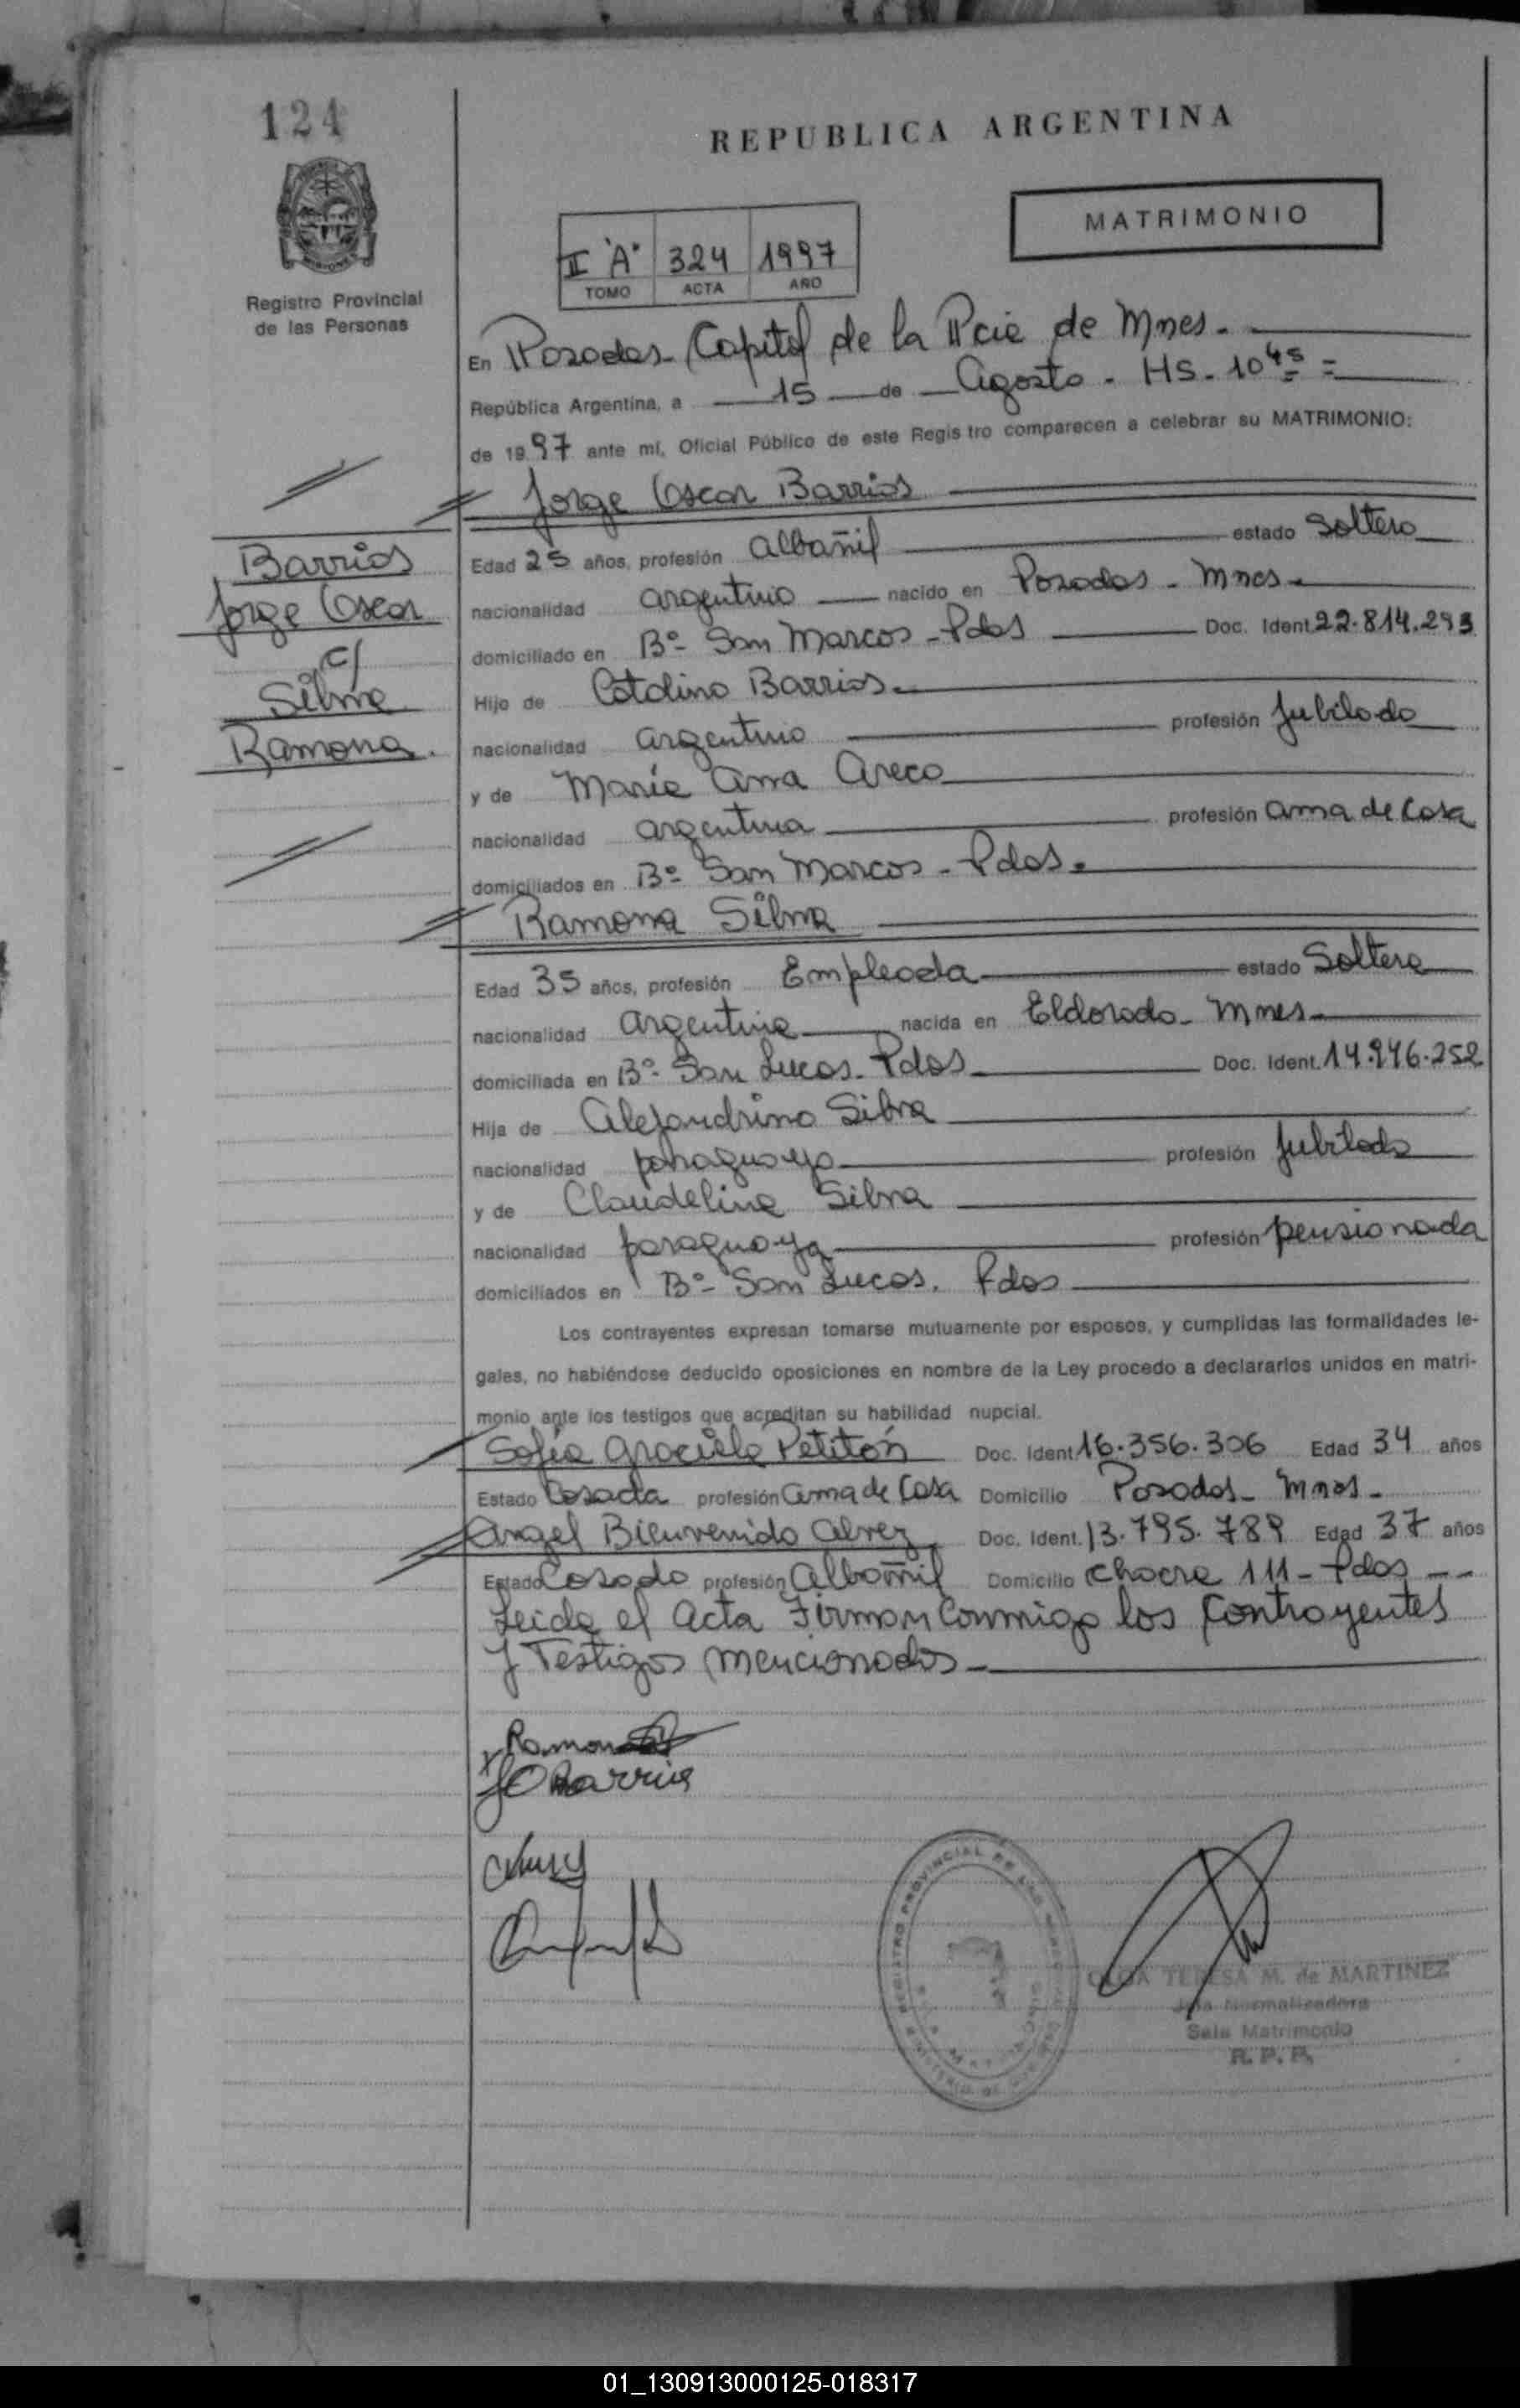 124
REPUBLICA ARGENTINA
MATRIMONIO
II "A" 324 1997
TOMO ACTA AÑO
Registro Provincial
de las Personas
En Posadas - Capital de la Pcia de Mnes.
República Argentina, a 15 de Agosto - HS. 10 45
de 1997 ante mí, Oficial Público de este Registro comparecen a celebrar su MATRIMONIO:
Jorge Oscar Barrios
Barrios
Jorge Oscar
c/
Silva
Ramona.
Edad 25 años, profesión albañil estado Soltero
nacionalidad argentino nacido en Posadas - Mnes.
domiciliado en Bº San Marcos - Pdas Doc. Ident. 22.814.293
Hijo de Catalino Barrios.
nacionalidad argentino profesión Jubilado
y de María Ana Areco
nacionalidad argentina profesión ama de Casa
domiciliados en Bº San Marcos - Pdas.
Ramona Silva
Edad 35 años, profesión Empleada estado Soltera
nacionalidad argentina nacida en Eldorado - Mnes.
domiciliada en Bº San Lucas - Pdas Doc. Ident. 14.946.252
Hija de Alejandrino Silva
nacionalidad paraguayo profesión Jubilado
y de Claudelina Silva
nacionalidad paraguaya profesión pensionada
domiciliados en Bº San Lucas. Pdas
Los contrayentes expresan tomarse mutuamente por esposos, y cumplidas las formalidades le-
gales, no habiéndose deducido oposiciones en nombre de la Ley procedo a declararlos unidos en matri-
monio ante los testigos que acreditan su habilidad nupcial.
Sofía Graciela Petitón Doc. Ident. 16.356.306 Edad 34 años
Estado Casada profesión ama de Casa Domicilio Posadas - Mnes -
Angel Bienvenido Alvez Doc. Ident. 13.795.789 Edad 37 años
Estado Casado profesión Albañil Domicilio Chacra 111 - Pdas --
Leida el Acta Firman Conmigo los Contrayentes
y Testigos mencionados
Ramona
JO Barrios
REGISTRO PROVINCIAL DE LAS
TERESA M. de MARTINEZ
Jefa Normalizadora
Sala Matrimonio
R. P. P.
01_130913000125-018317